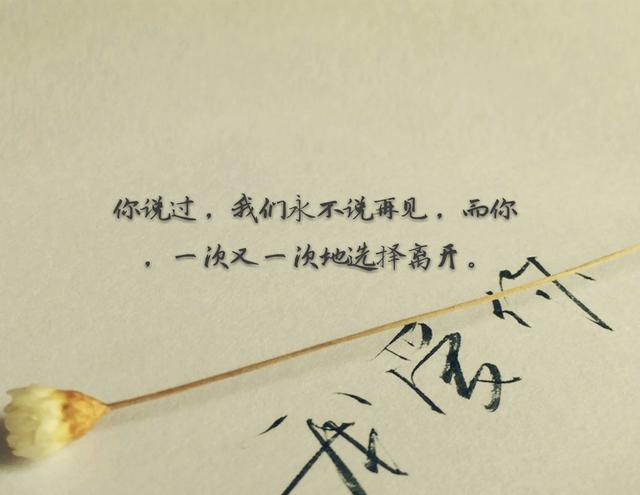 你说过，我们永不说再见，而你
，一次又一次地选择离开。